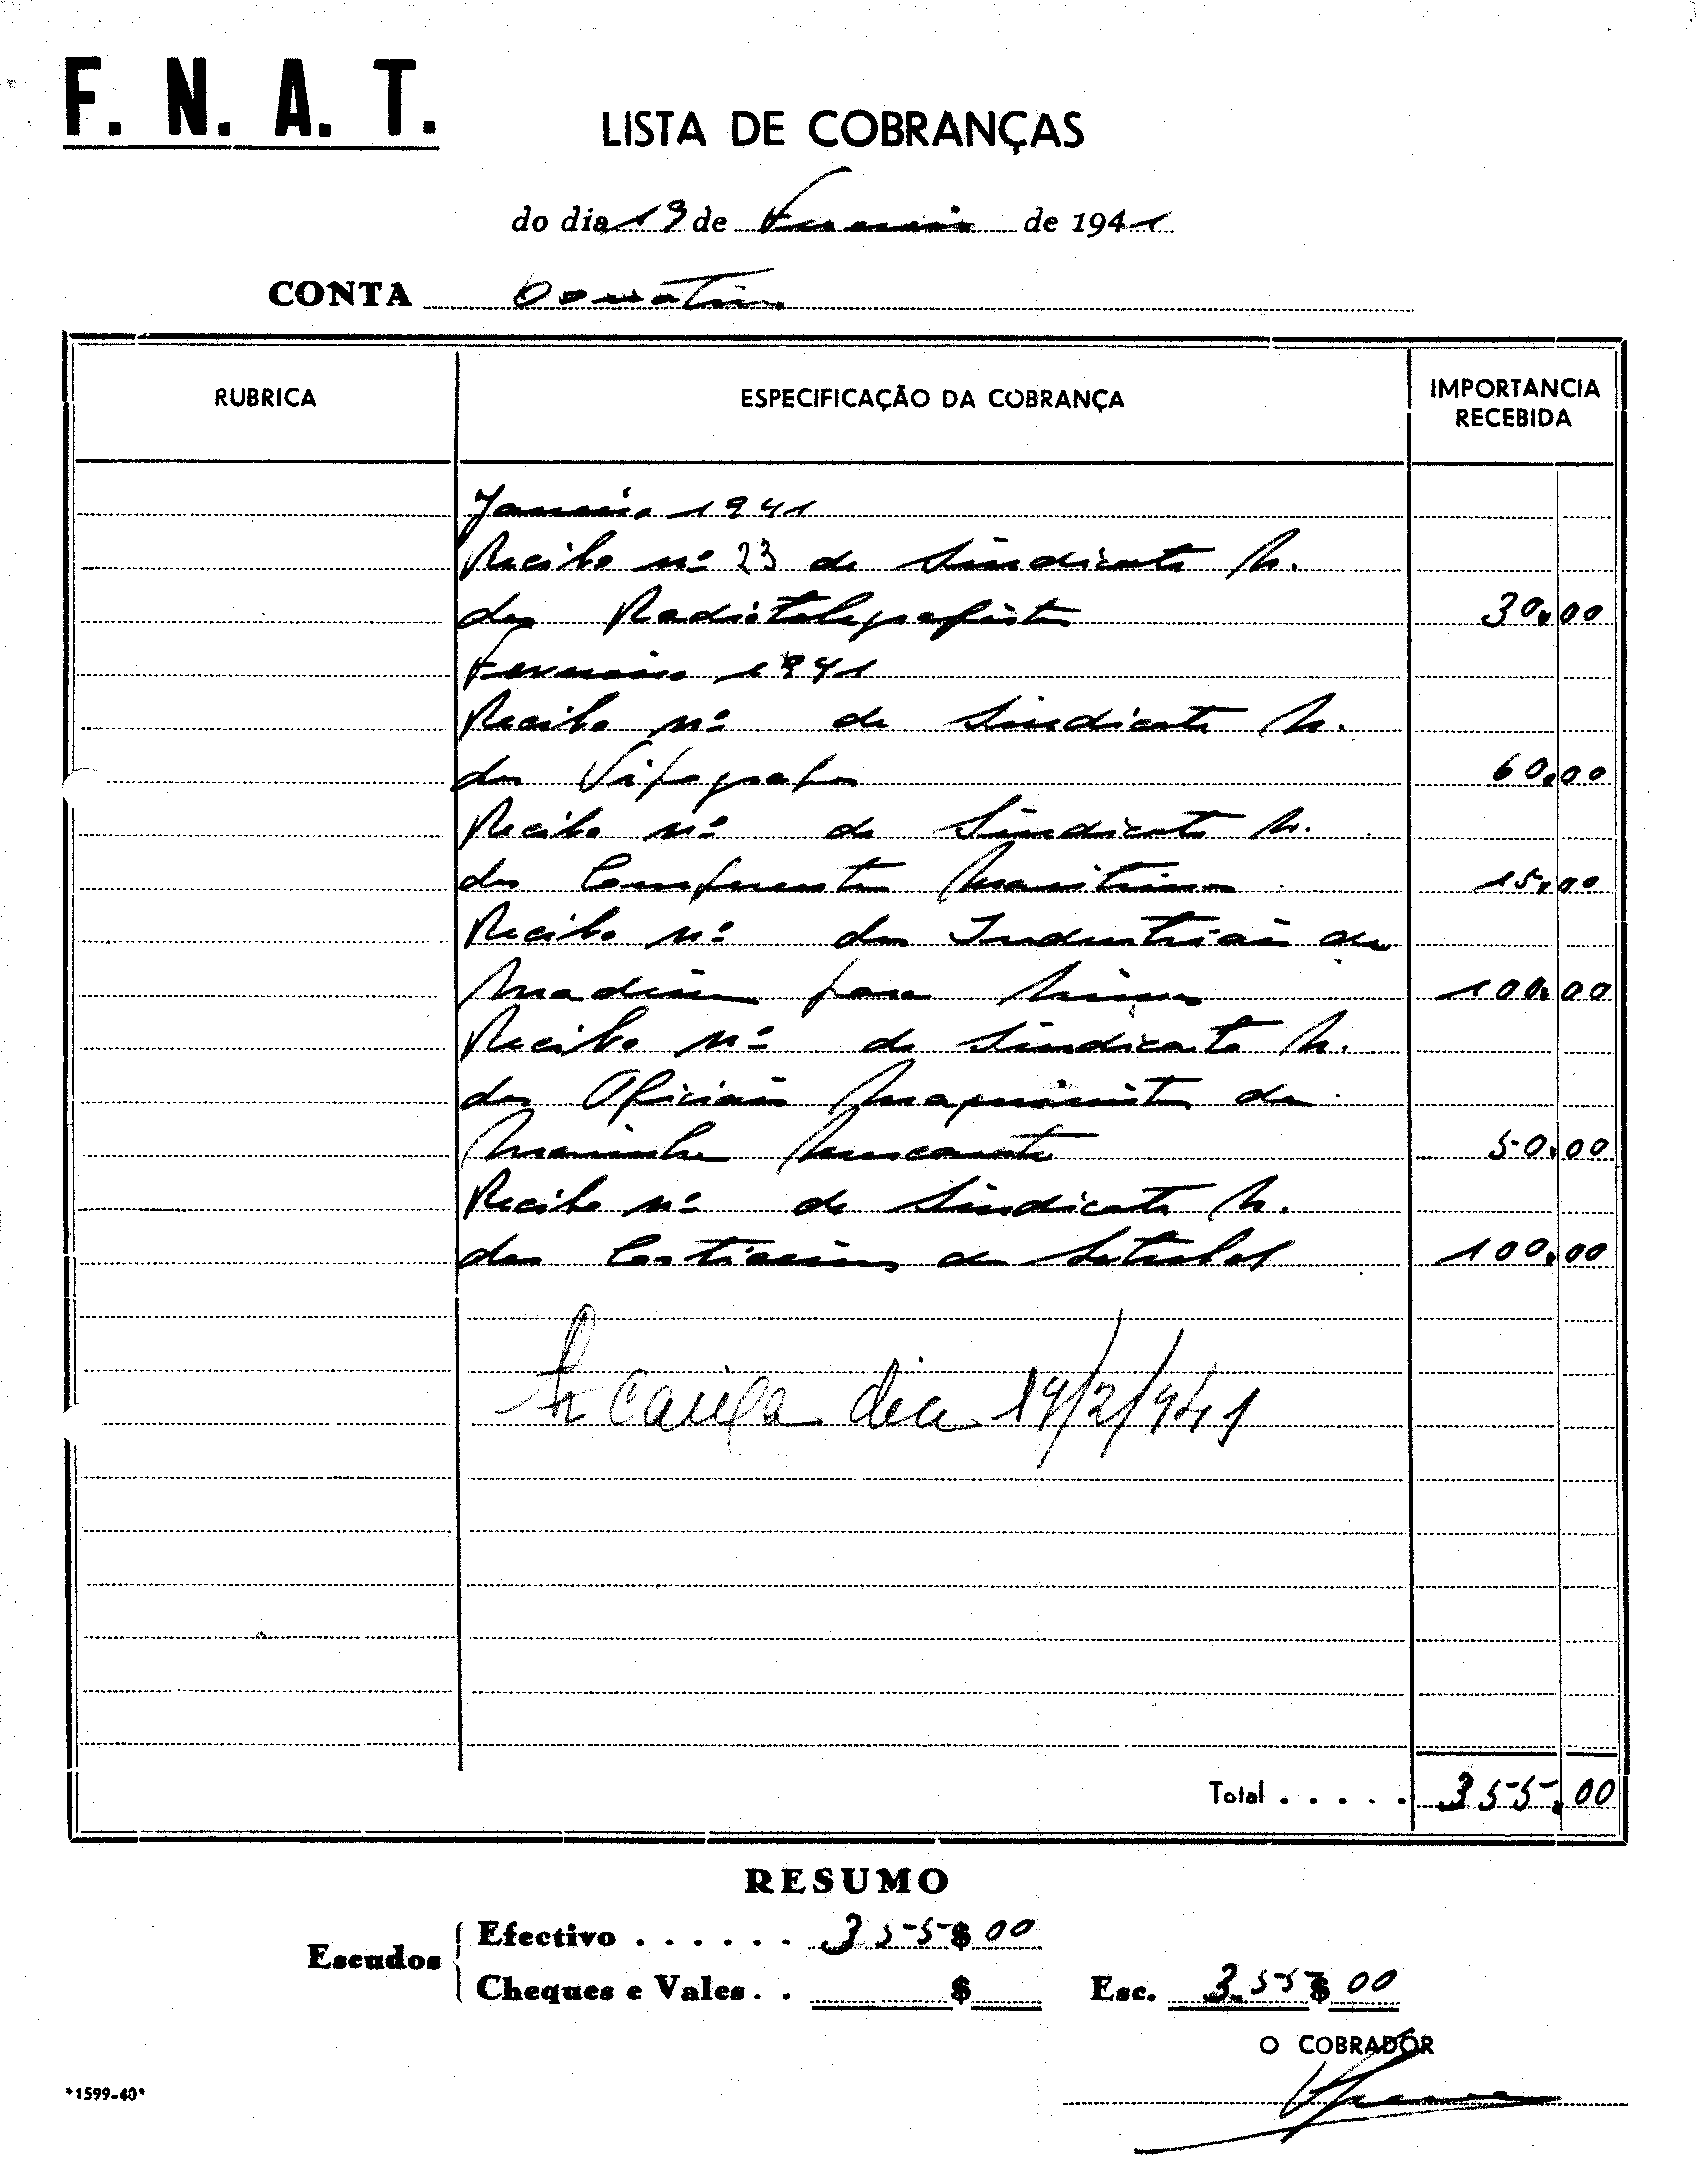 F. N. A. T.
LISTA DE COBRANÇAS
do dia 13 de Fevereiro de 1941
CONTA Donativos
RUBRICA
ESPECIFICAÇÃO DA COBRANÇA
IMPORTANCIA
RECEBIDA
Janeiro 1941
Recibo nº 23 do Sindicato N.
dos Radiotelegrafistas 30.00
Fevereiro 1941
Recibo nº do Sindicato N.
dos Tipografos 60.00
Recibo nº do Sindicato N.
dos Maritimos 15.00
Recibo nº dos Industriais de
Madeiras para Minas 100.00
Recibo nº do Sindicato N.
dos Oficiais Maquinistas da
Marinha Mercante 50.00
Recibo nº do Sindicato N.
dos Corticeiros de Setubal 100.00
caixa dia 14/2/941
Total . . . . . 355.00
RESUMO
Escudos
Efectivo . . . . . . 355$00
Cheques e Vales . . $
Esc. 355$00
O COBRADOR
*1599-40*